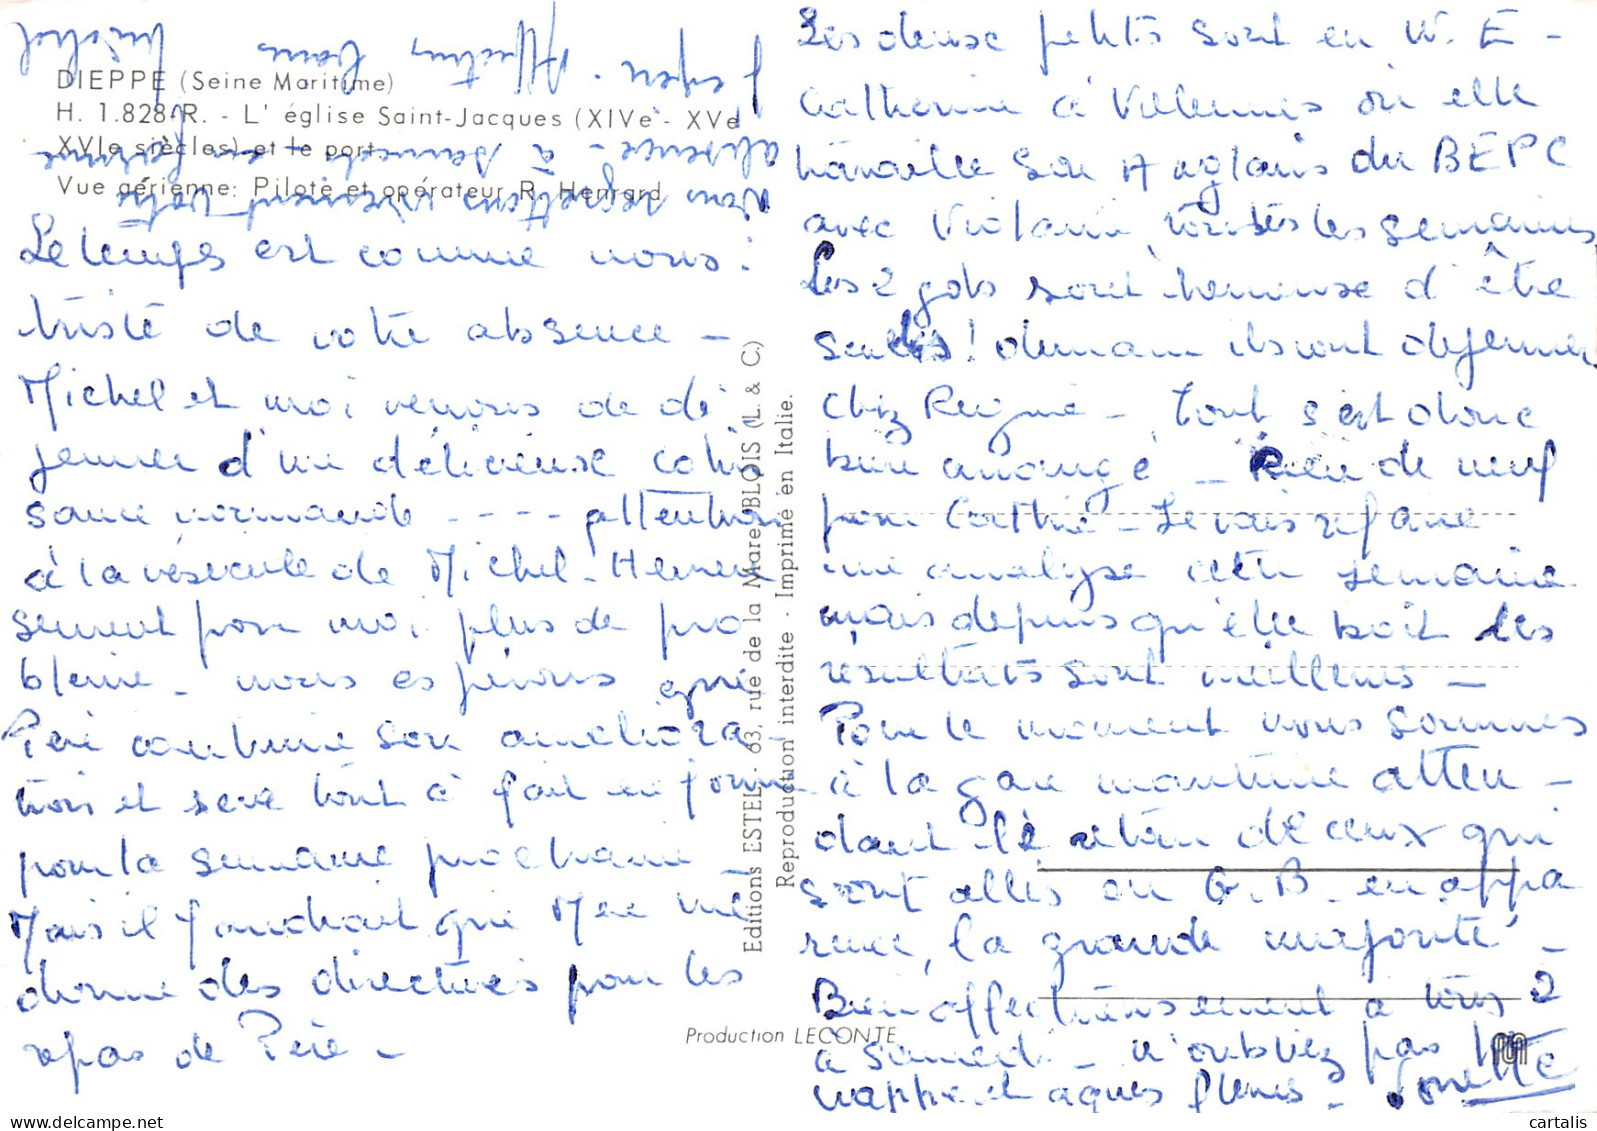 DIEPPE (Seine Maritime)
H. 1.828 R. - L' église Saint-Jacques (XIVe - XVe
XVIe siècles) et le port
Vue aérienne: Pilote et opérateur R. Henrard
Le temps est comme nous :
triste de votre absence -
Michel et moi venons de dé
jeuner d'un délicieuse colin
sauce normande - - - - attention
à la vésicule de Michel - Heureu
sement pour moi plus de pro
blème - nous espérons que
Père continue son améliora -
tion et sera tout à fait en forme
pour la semaine prochaine
Mais il faudrait que Mère me
donne des directives pour les
repas de Père -
Nous regrettons vivement votre
absence - à samedi - en forme
j'espère. Affectueux
Michel
Editions ESTEL - 63, rue de la Mare BLOIS (L. & C.)
Reproduction interdite - Imprimé en Italie.
Production LECONTE
Les deux petits sont en W. E -
Catherine à Villennes où elle
travaille son Anglais du BEPC
avec toutes les semaines
Les 2 gods sont heureuse d'être
seules ! demain ils vont dejeuner
chez Regine - Tout s'est donc
bien arrangé - Rien de neuf
pour Cathie - Je vais refaire
une analyse cette semaine
mais depuis qu'elle boit les
résultats sont meilleurs -
Pour le moment nous sommes
à la gare maritime atten -
dant le retour de ceux qui
sont allés en G.B. en appa
rence, la grande majorité -
Bien affectueusement à tous 2
a samedi - n'oubliez pas
nappe et aques -